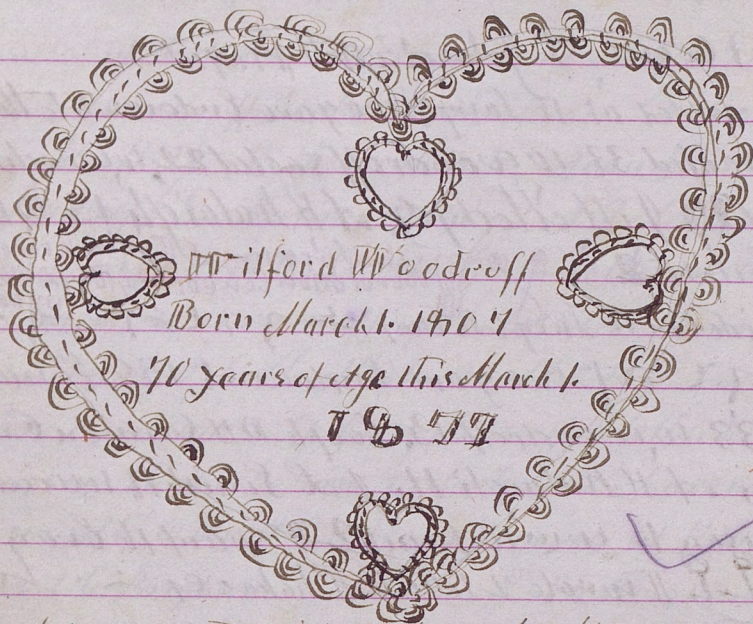 Wilford Woodruff
Born March 1. 1807
70 years of Age this March 1.
1877